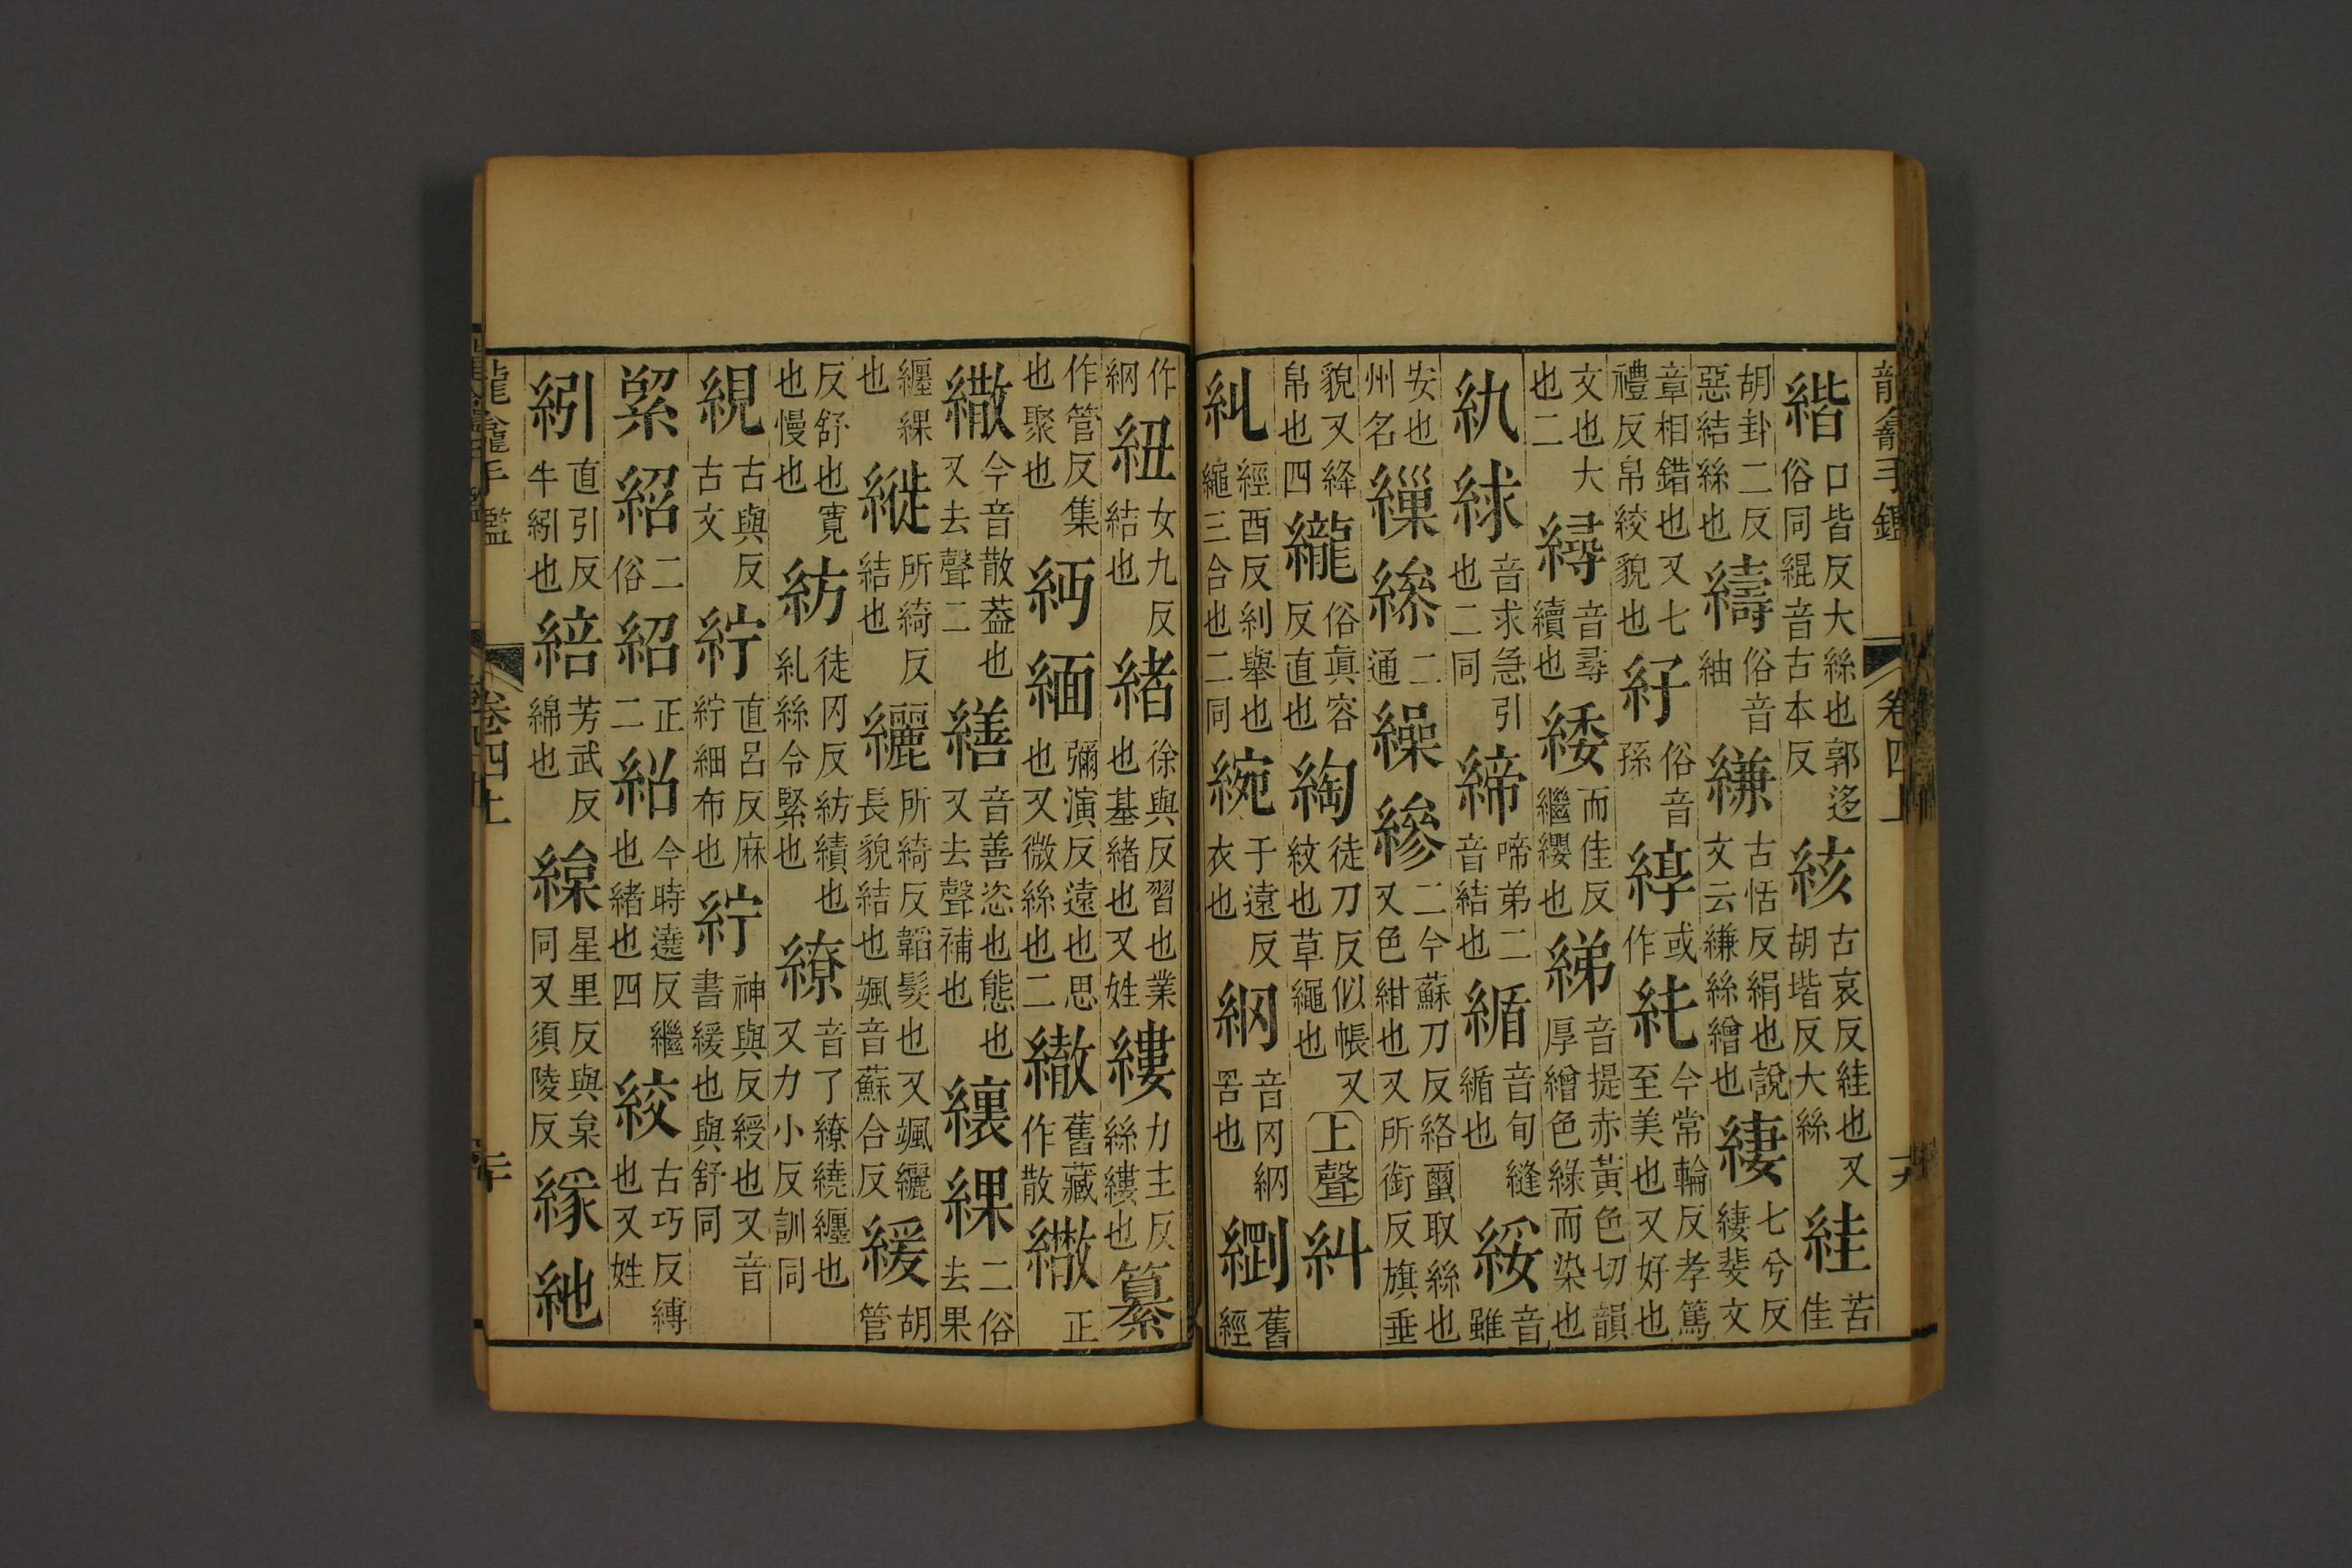 龍龕手鑑 卷四上
口皆反大絲也郭迻俗同緄音古本反 絯 古哀反絓也又胡堦反大絲 絓 苦佳
胡卦二反惡結絲也 俗音紬 縑 古恬反絹也說文云縑絲繒也 緀 七兮反緀斐文
章相錯也又七禮反帛絞貌也 俗音孫 綧 或作 純 今常輪反孝篤至美也又好也
文也大也二 音尋續也 緌 而佳反繼纓也 綈 音提赤黃色切韻厚繒色綠而染也
絿 音求急引也二同 締 啼弟二音結也 音旬縫也 綏 音雖
安也州名 繅 二通 繰 縿 二今蘇刀反絡蠒取絲也又色紺也又所銜反旗垂
貌又絳帛也四 俗眞容反直也 綯 徒刀反似帳又紋也草繩也 上聲 糾
糺 經酉反糾舉也繩三合也二同 綩 于遠反衣也 網 音冈網罟也 舊經
作網 紐 女九反結也 緒 徐與反習也業也基緒也又姓 縷 力主反絲縷也 纂
作管反集也聚也 緬 彌演反遠也思也又微絲也二 舊藏作散 繖 正
今音散葢也又去聲二 繕 音善恣也態也又去聲補也 綶 二俗去果
纏綶也 縰 所綺反結也 纚 所綺反韜髮也又颯纚長貌結也颯音蘇合反 緩 胡管
反舒也寛也慢也 紡 徒冈反紡績也糺絲令緊也 繚 音了繚繞纏也又力小反訓同
絸 古與反古文 紵 直呂反麻紵細布也 紵 神與反綬也又音書緩也與舒同
紹 二俗 紹 正二 紹 今時遶反繼也緒也四 絞 古巧反縛也又姓
紖 直引反牛紖也 芳武反綿也 星里反與枲同又須陵反 絁
龍龕手鑑 卷四上 二十